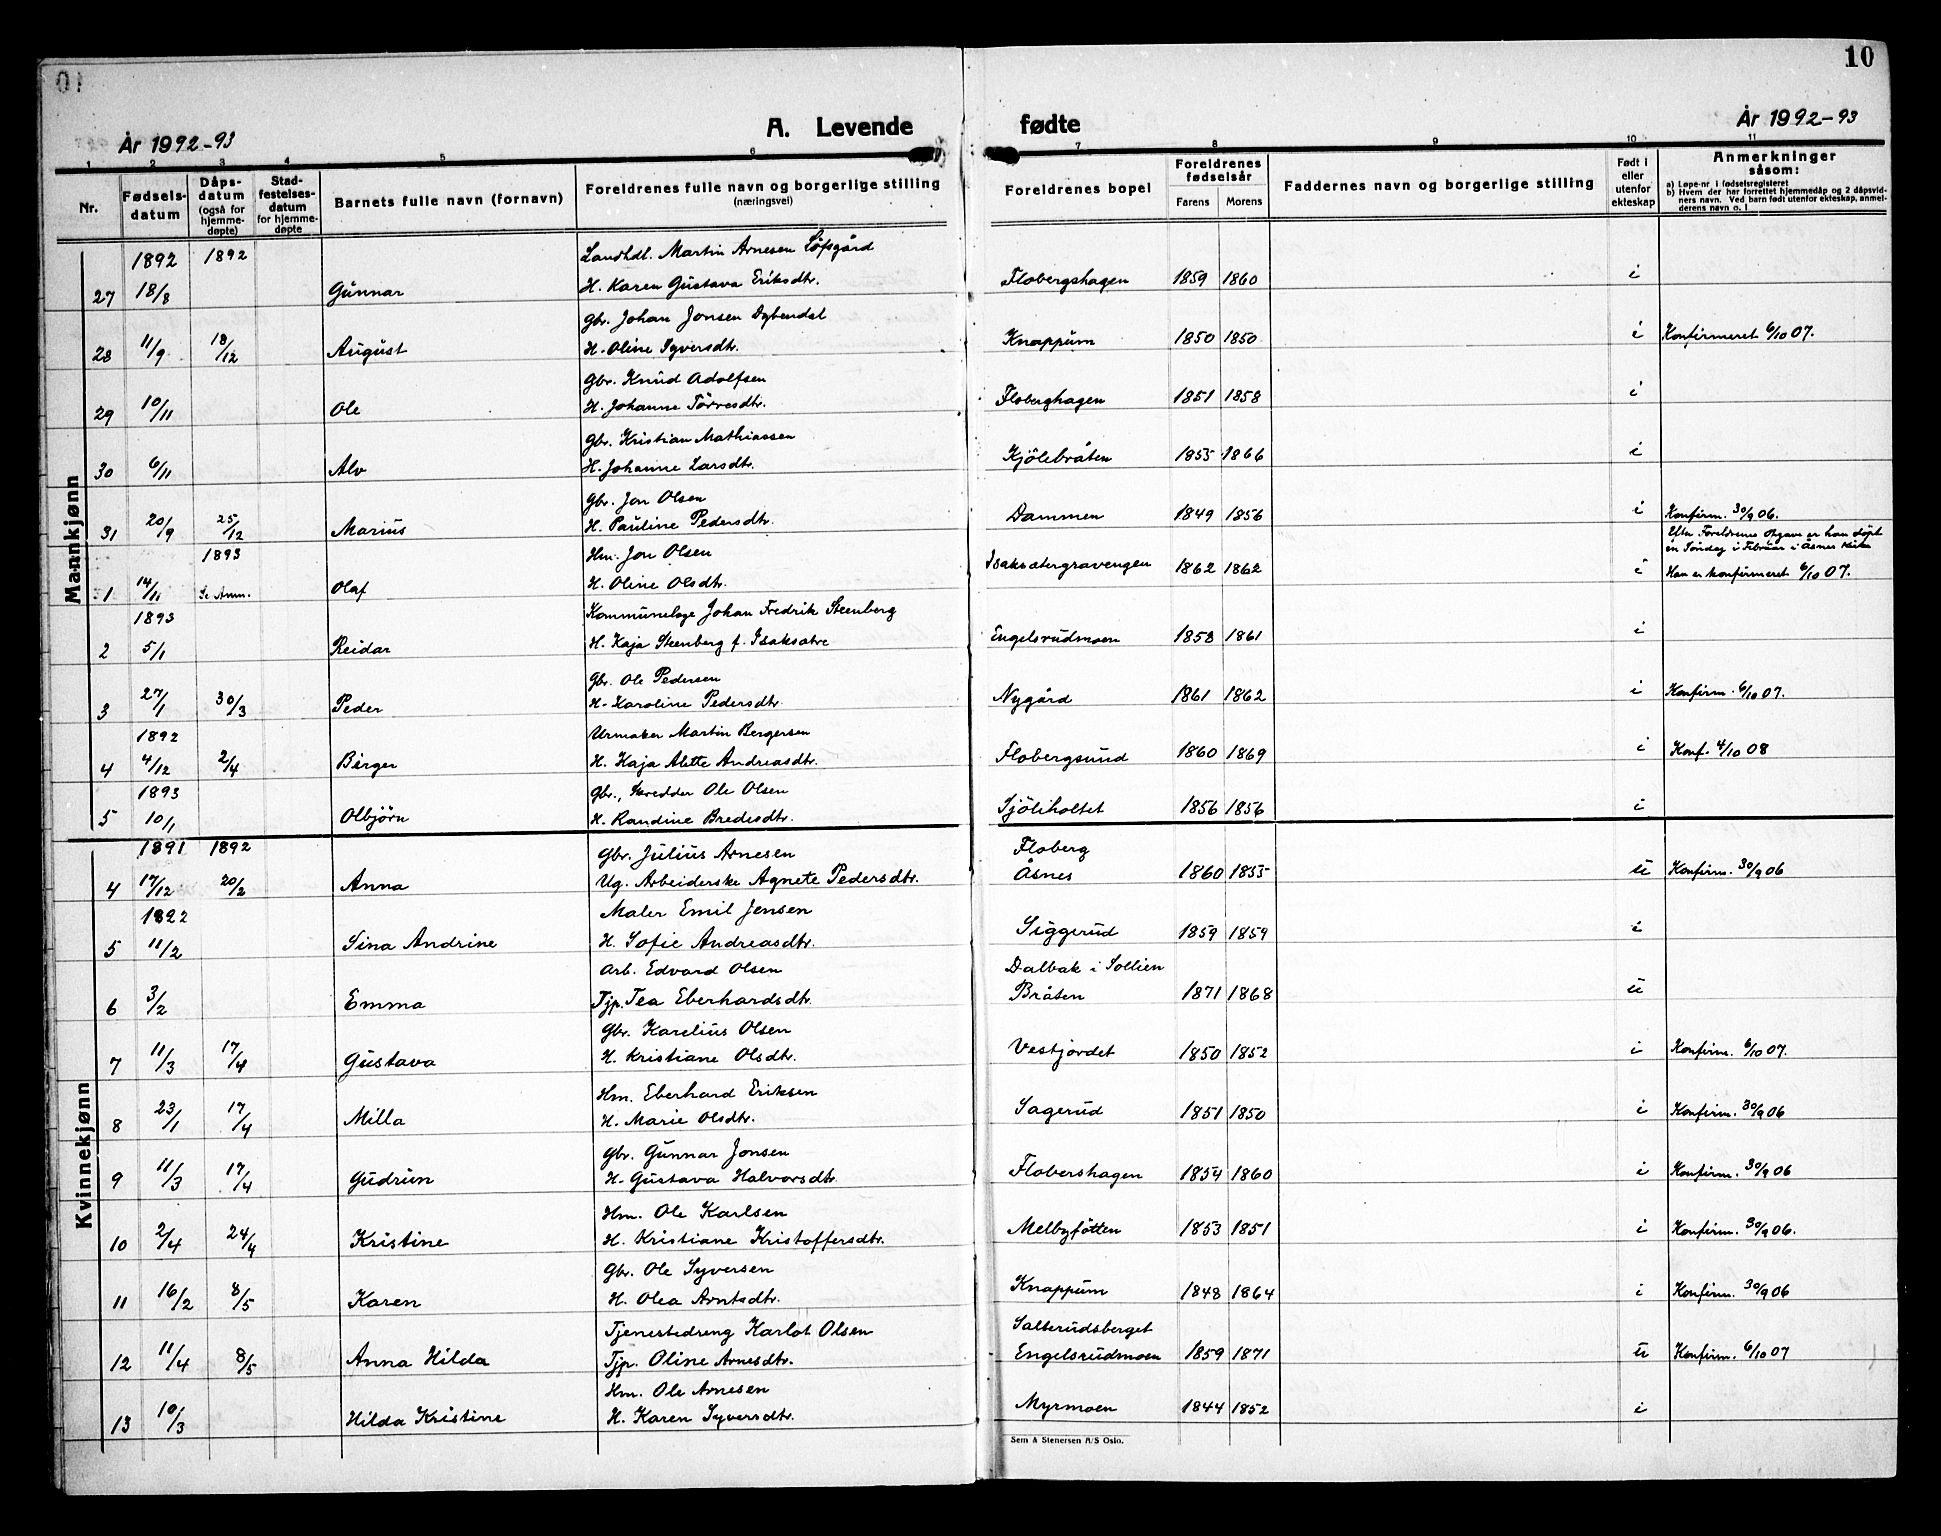 10
År 1992-93
A. Levende fødte
År 1992-93
1 2 3 4 5 6 7 8 9 10 11
Nr. Fødselsdatum Dåpsdatum (også for hjemmedøpte) Stadfestelsesdatum for hjemmedøpte Barnets fulle navn (fornavn) Foreldrenes fulle navn og borgerlige stilling (næringsvei) Foreldrenes bopel Foreldrenes fødselsår Farens Morens Faddernes navn og borgerlige stilling Født i eller utenfor ekteskap Anmerkninger såsom:
a) Løpe-nr i fødselsregisteret
b) Hvem der har forrettet hjemmedåp og 2 dåpsvidners navn. Ved barn født utenfor ekteskap, anmelderens navn o. l
Mannkjønn
1892 1892 Landhdl. Martin Arnesen Löfsgård
27 18/8 Gunnar H. Karen Gustava Eriksdtr. Flobergshagen 1859 1860 i
Gbr. Johan Jonsen Dybendal
28 11/9 18/12 August H. Oline Syversdtr. Knappum 1850 1850 i Konfirmeret 6/10 07.
Gbr. Knud Adolfsen
29 10/11 Ole H. Johanne Törresdtr. Floberghagen 1851 1858 i
Gbr. Kristian Mathiassen
30 6/11 Alv H. Johanne Larsdtr. Kjölebråten 1855 1866 i
Gbr. Jon Olsen
31 20/9 25/12 Marius H. Pauline Pedersdtr. Dammen 1849 1856 i Konfirm. 30/9 06.
1893 Hm. Jon Olsen Efter Foreldrenes Opgave er han döpt en Söndag i Februar i Åsnes Kirke
1 14/11 Se Anm. Olaf H. Oline Olsdtr. Isaksætergravengen 1862 1862 i Han er konfirmeret 6/10 07.
1893 Kommunelæge Johan Fredrik Steenberg
2 5/1 Reidar H. Kaja Steenberg f. Isaksætre Engelsrudmoen 1858 1861 i
Gbr. Ole Pedersen
3 27/1 30/3 Peder H. Karoline Pedersdtr. Nygård 1861 1862 i Konfirm. 6/10 07.
1892 Urmaker Martin Bergersen
4 4/12 2/4 Birger H. Kaja Alette Andreasdtr. Flobergsund 1860 1869 i Konf. 4/10 08
1893 Gbr., Skredder Ole Olsen
5 10/1 Olbjörn H. Randine Bredesdtr. Sjöliholtet 1856 1856 i
Kvinnekjønn
1891 1892 Gbr. Julius Arnesen Floberg
4 17/12 20/2 Anna Ug. Arbeiderske Agnete Pedersdtr. Åsnes 1860 1855 u Konfirm. 30/9 06
1892 Maler Emil Jensen
5 11/2 Sina Andrine H. Sofie Andreasdtr. Siggerud 1859 1859 i
Arb. Edvard Olsen Dalbak i Sollien
6 3/2 Emma Tjp. Tea Eberhardsdtr. Bråten 1871 1868 u
Gbr. Karelius Olsen
7 11/3 17/4 Gustava H. Kristiane Olsdtr. Vestjordet 1850 1852 i Konfirm. 6/10 07.
Hm. Eberhard Eriksen
8 23/1 17/4 Milla H. Marie Olsdtr. Sagerud 1851 1850 i Konfirm. 30/9 06
Gbr. Gunnar Jonsen
9 11/3 17/4 Gudrun H. Gustava Halvorsdtr. Flobershagen 1854 1860 i Konfirm. 30/9 06
Hm. Ole Karlsen
10 2/4 24/4 Kristine H. Kristiane Kristoffersdtr. Melbyfötten 1853 1851 i Konfirm. 30/9 06.
Gbr. Ole Syversen
11 16/2 8/5 Karen H. Olea Arntsdtr. Knappum 1848 1864 i Konfirm. 30/9 06
Tjenestedreng Karlot Olsen Salterudsberget
12 11/4 8/5 Anna Hilda Tjp. Oline Arnesdtr. Engelsrudmoen 1859 1871 u Konfirm. 6/10 07
Hm. Ole Arnesen
13 10/3 Hilda Kristine H. Karen Syversdtr. Myrmoen 1844 1852 i
Sem & Stenersen A/S Oslo.